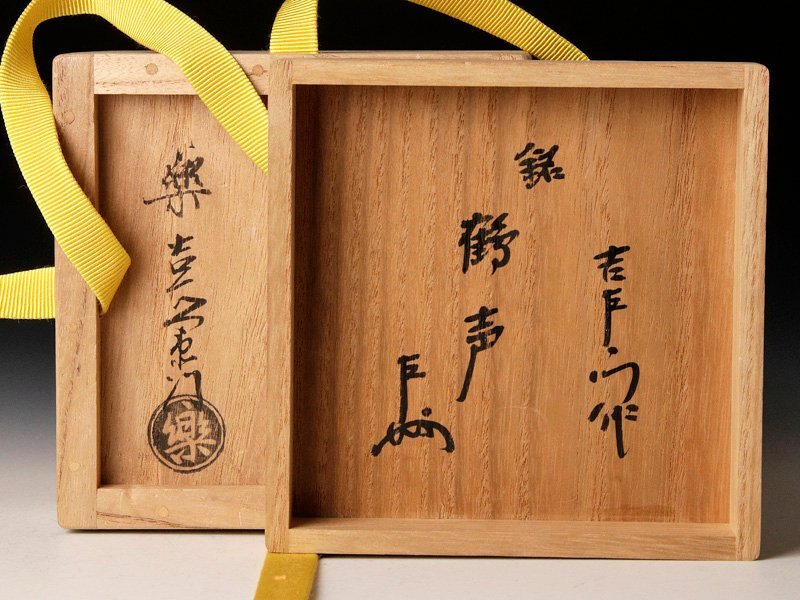 吉左衛門作
銘
鶴声
左
樂
吉左衛門
樂